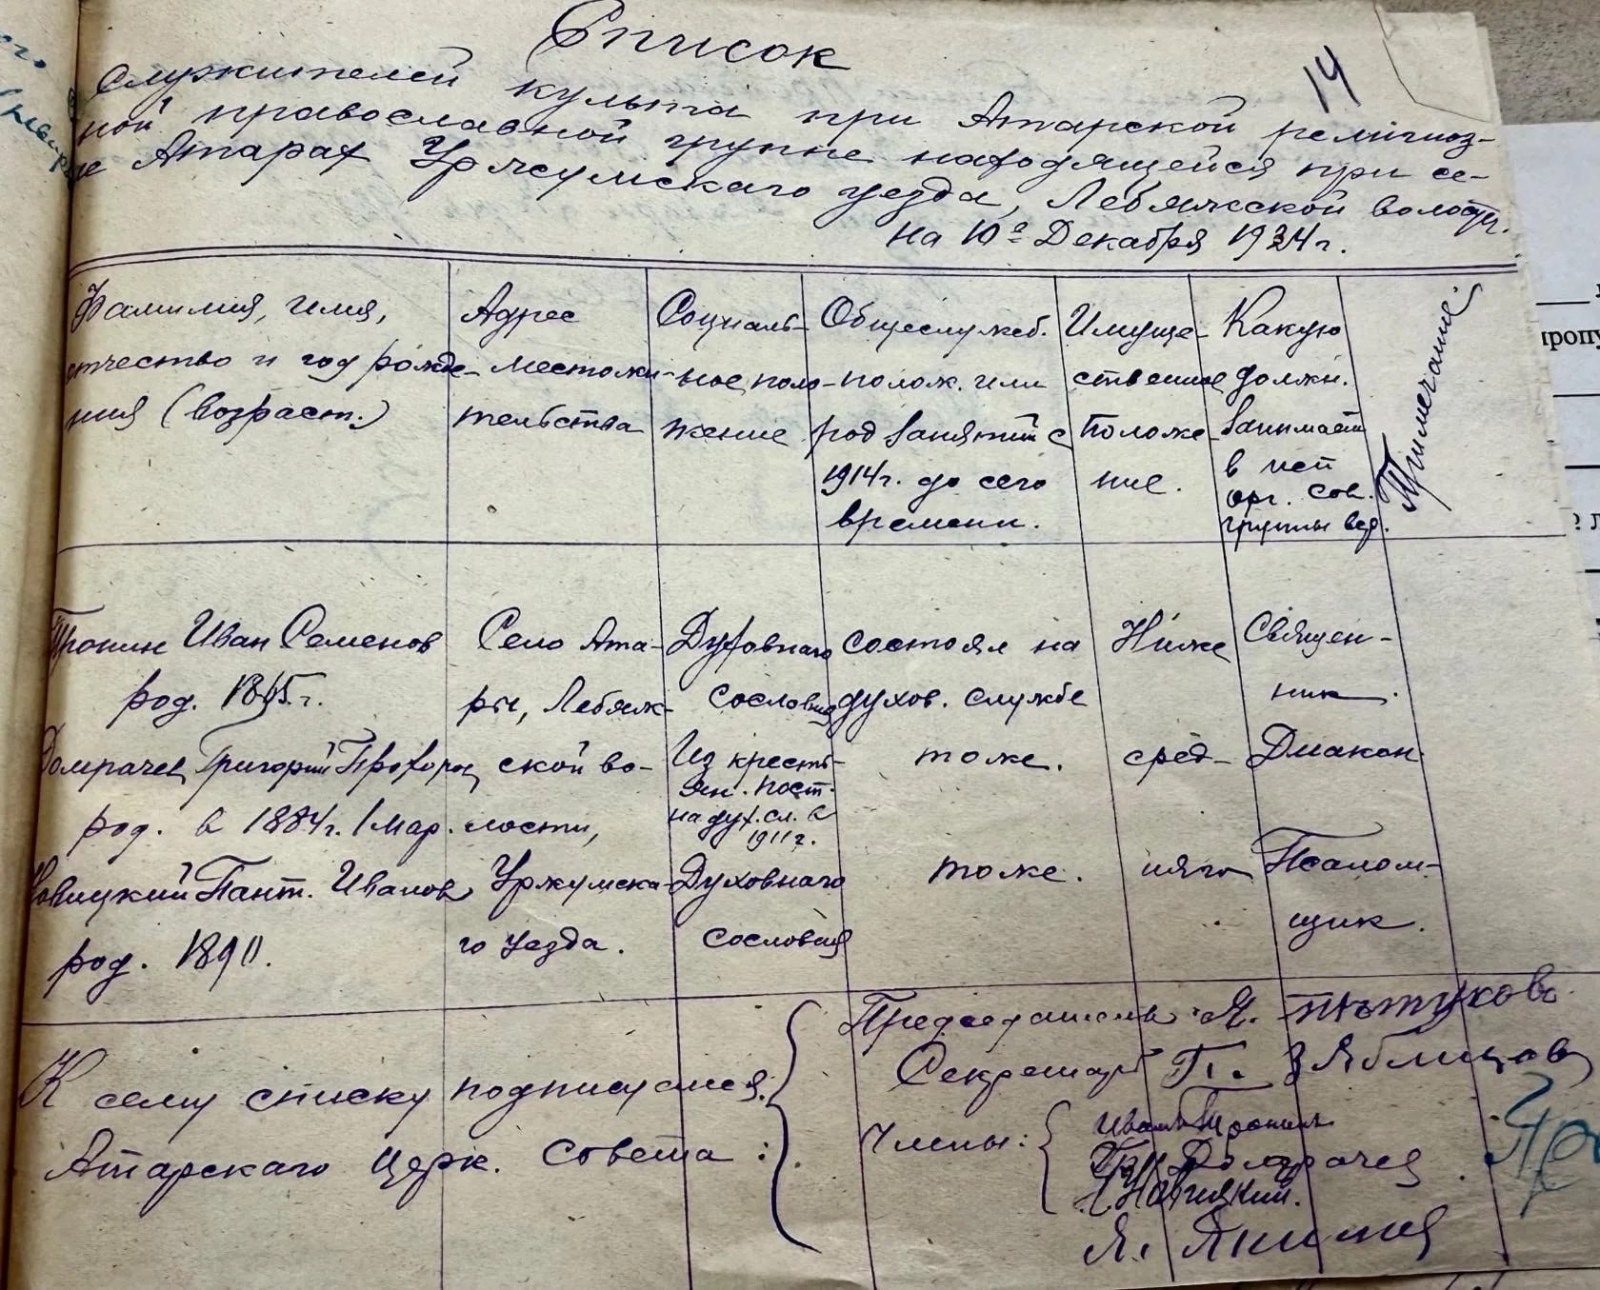 Список
14
служителей культа при Атарской религиоз-
ной православной группе находящейся при се-
ле Атарах Уржумскаго уезда, Лебяжской волости.
на 10е Декабря 1924г.
Фамилия, имя,
отчество и год рожде-
ния (возраст.)
Адрес
местожи-
тельства
Социаль-
ное поло-
жение
Общеслужеб.
полож. или
род занятий с
1914г. до сего
времени.
Имуще-
ственное
Положе-
ние.
Какую
должн.
занимает
в
орг. сов.
группы вер.
Примечание.
Тронин Иван Семенов
род. г.
Село Ата-
ры, Лебяж-
ской во-
лости,
Уржумска-
го уезда.
Духовнаго
сословия
состоял на
духов. службе
Ниже
Священ-
ник.
Домрачев Григорий Прохоров
род. в 1884г. 1 мар.
Из кресть-
ян. пост.
на дух. сл. в
1911г.
тоже.
сред-
няго
Диакон.
Новицкий Пант. Иванов
род. 1890.
Духовнаго
сословия
тоже.
Псалом-
щик.
К сему списку подписуемся:
Атарскаго церк. Совета:
Председатель Я. Пѣтуковъ
Секретарь П. Зяблицов
Члены:
Иванъ Тронин
Домрачев
Новицкий.
Я.